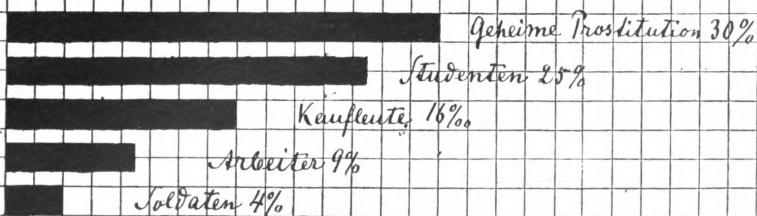 Geheime Prostitution 30%
Studenten 25%
Kaufleute 16%
Arbeiter 9%
Soldaten 4%